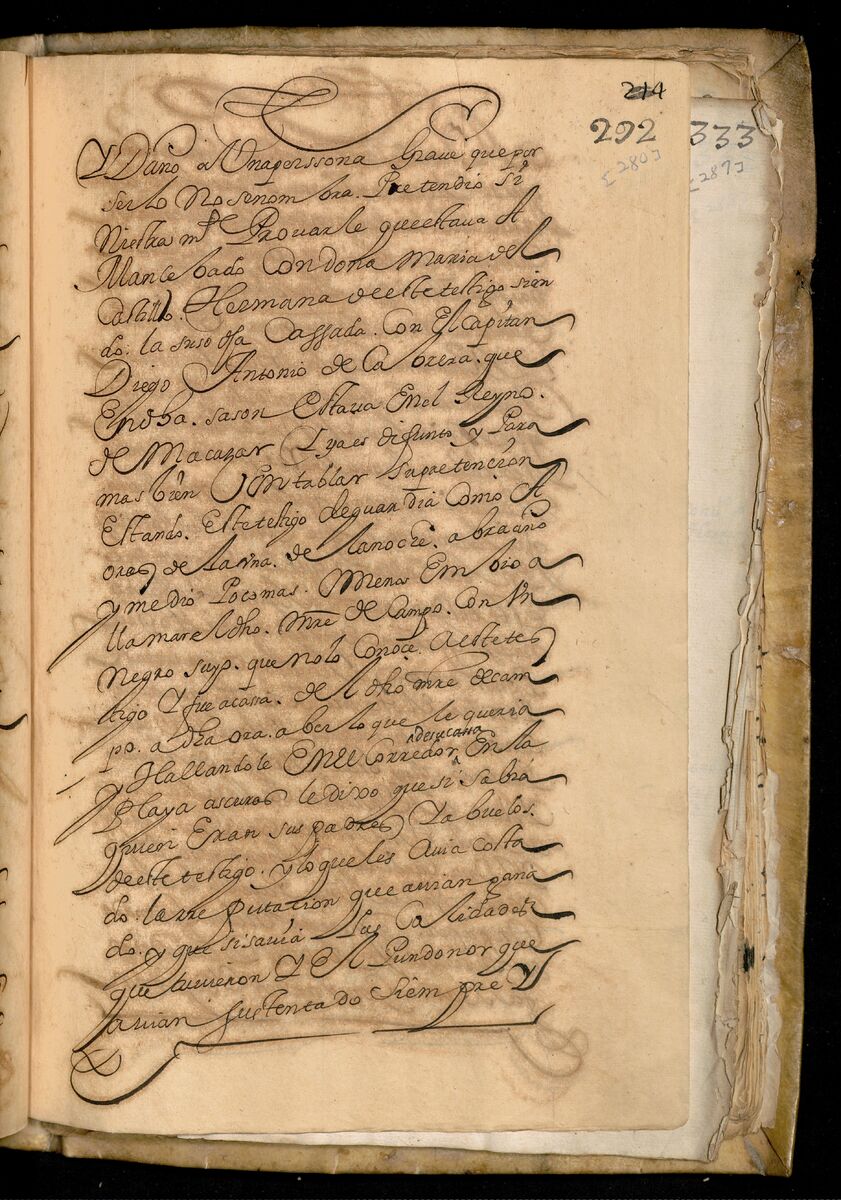 214
292 333
[280] [287]
Y Daño a Vna perssona Graue que por
serlo No se nombra. Pretendio si
Niestra md Prouarle que estaua A
Mancebado Con dona Maria del
Castillo. Hermana de este testigo sien
do. la suso dha Cassada. Con El Capitan
Diego Antonio de Cabrera. que
En dha. sason Estaua En el Reyno.
de Macazar Y ya es difunto y Para
mas bien Entablar su pretencion
Estando. Este testigo de guardia Como A
oras de la vna. de la noche. abra año
y medio Poco mas. o Menos Embio a
llamar el dho. mre de Campo. Con Vn
Negro suyo. que no lo Conoce. A este tes
tigo Y fue a cassa. del dho mre de cam
po. a dha ora. a ber lo que le queria
y Hallandole En El Corredor de su cassa En la
Playa ascuras le dixo que si sabia
quien Eran sus padres Y abuelos.
de este testigo. y lo que les Auia Costa
do. la rreputacion que auian gana
do. y que si sauia Las Calidades
que tuuieron Y El Pundonor que
auian sustentado Siempre Y